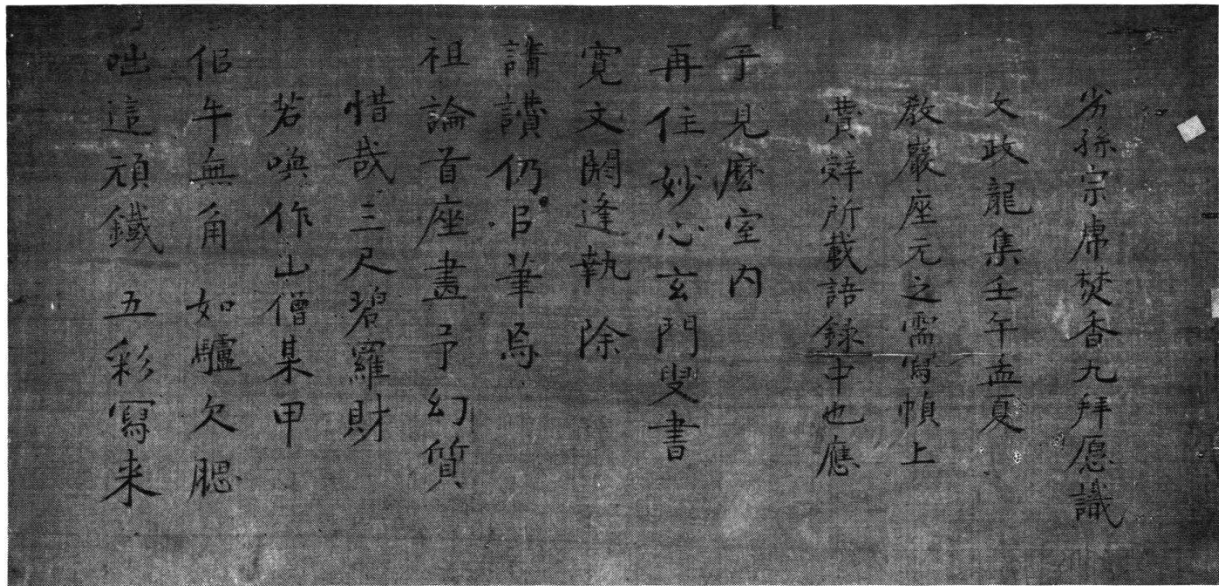 咄這頑鐵 五彩寫来
佀牛無角 如驢欠腮
若喚作山僧某甲
惜哉三尺碧羅財
祖論首座畫予幻質
請讃仍㠯筆焉
寛文閼逢執除
再住妙心玄門叟書
于見麼室内
賛辞所載語録中也應
教嚴座元之需寫幀上
文政龍集壬午孟夏
劣孫宗席焚香九拜愿識